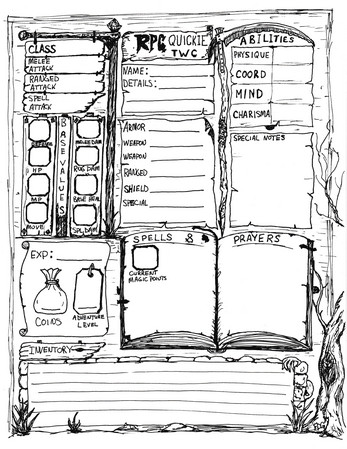 CLASS
MELEE
ATTACK
RANGED
ATTACK
SPELL
ATTACK
RPG QUICKIE
TWC
NAME:
DETAILS:
ABILITIES
PHYSIQUE
COORD
MIND
CHARISMA
BASE VALUES
HP
MP
MOVE
MELEE DAM
RNG DAM
BASE HEAL
SPL DAM
ARMOR
WEAPON
WEAPON
RANGED
SHIELD
SPECIAL
SPECIAL NOTES
EXP:
COINS
ADVENTURE
LEVEL
SPELLS &
PRAYERS
CURRENT
MAGIC POINTS
INVENTORY